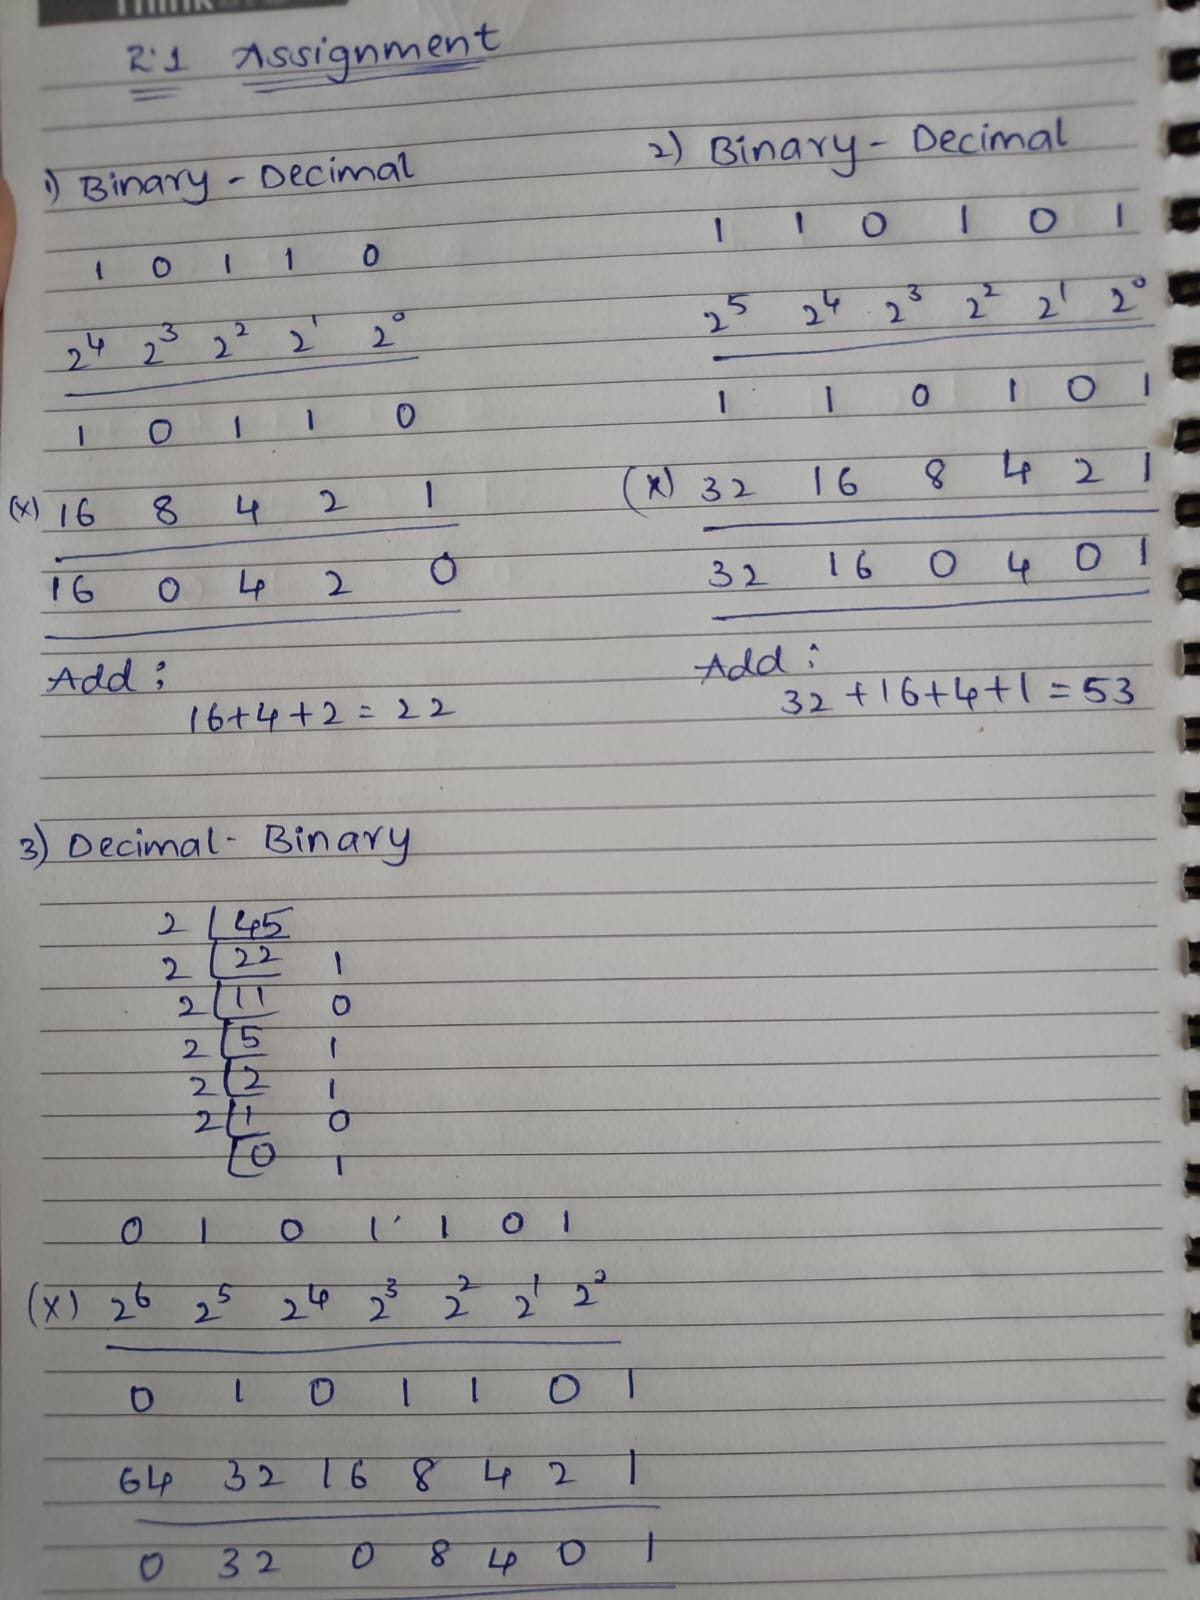 2.1 Assignment
1) Binary - Decimal
1 0 1 1 0
2⁴ 2³ 2² 2¹ 2⁰
1 0 1 1 0
(x) 16 8 4 2 1
16 0 4 2 0
Add :
16+4+2 = 22
2) Binary - Decimal
1 1 0 1 0 1
2⁵ 2⁴ 2³ 2² 2¹ 2⁰
1 1 0 1 0 1
(x) 32 16 8 4 2 1
32 16 0 4 0 1
Add :
32 +16+4+1 = 53
3) Decimal - Binary
2 45
2 22 1
2 11 0
2 5 1
2 2 1
2 1 0
0 1
0 1 0 1 1 0 1
(x) 2⁶ 2⁵ 2⁴ 2³ 2² 2¹ 2⁰
0 1 0 1 1 0 1
64 32 16 8 4 2 1
0 32 0 8 4 0 1